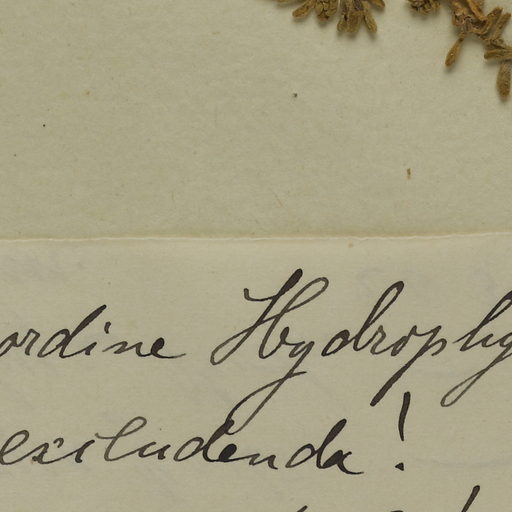 ordine Hydrophy
excludenda!